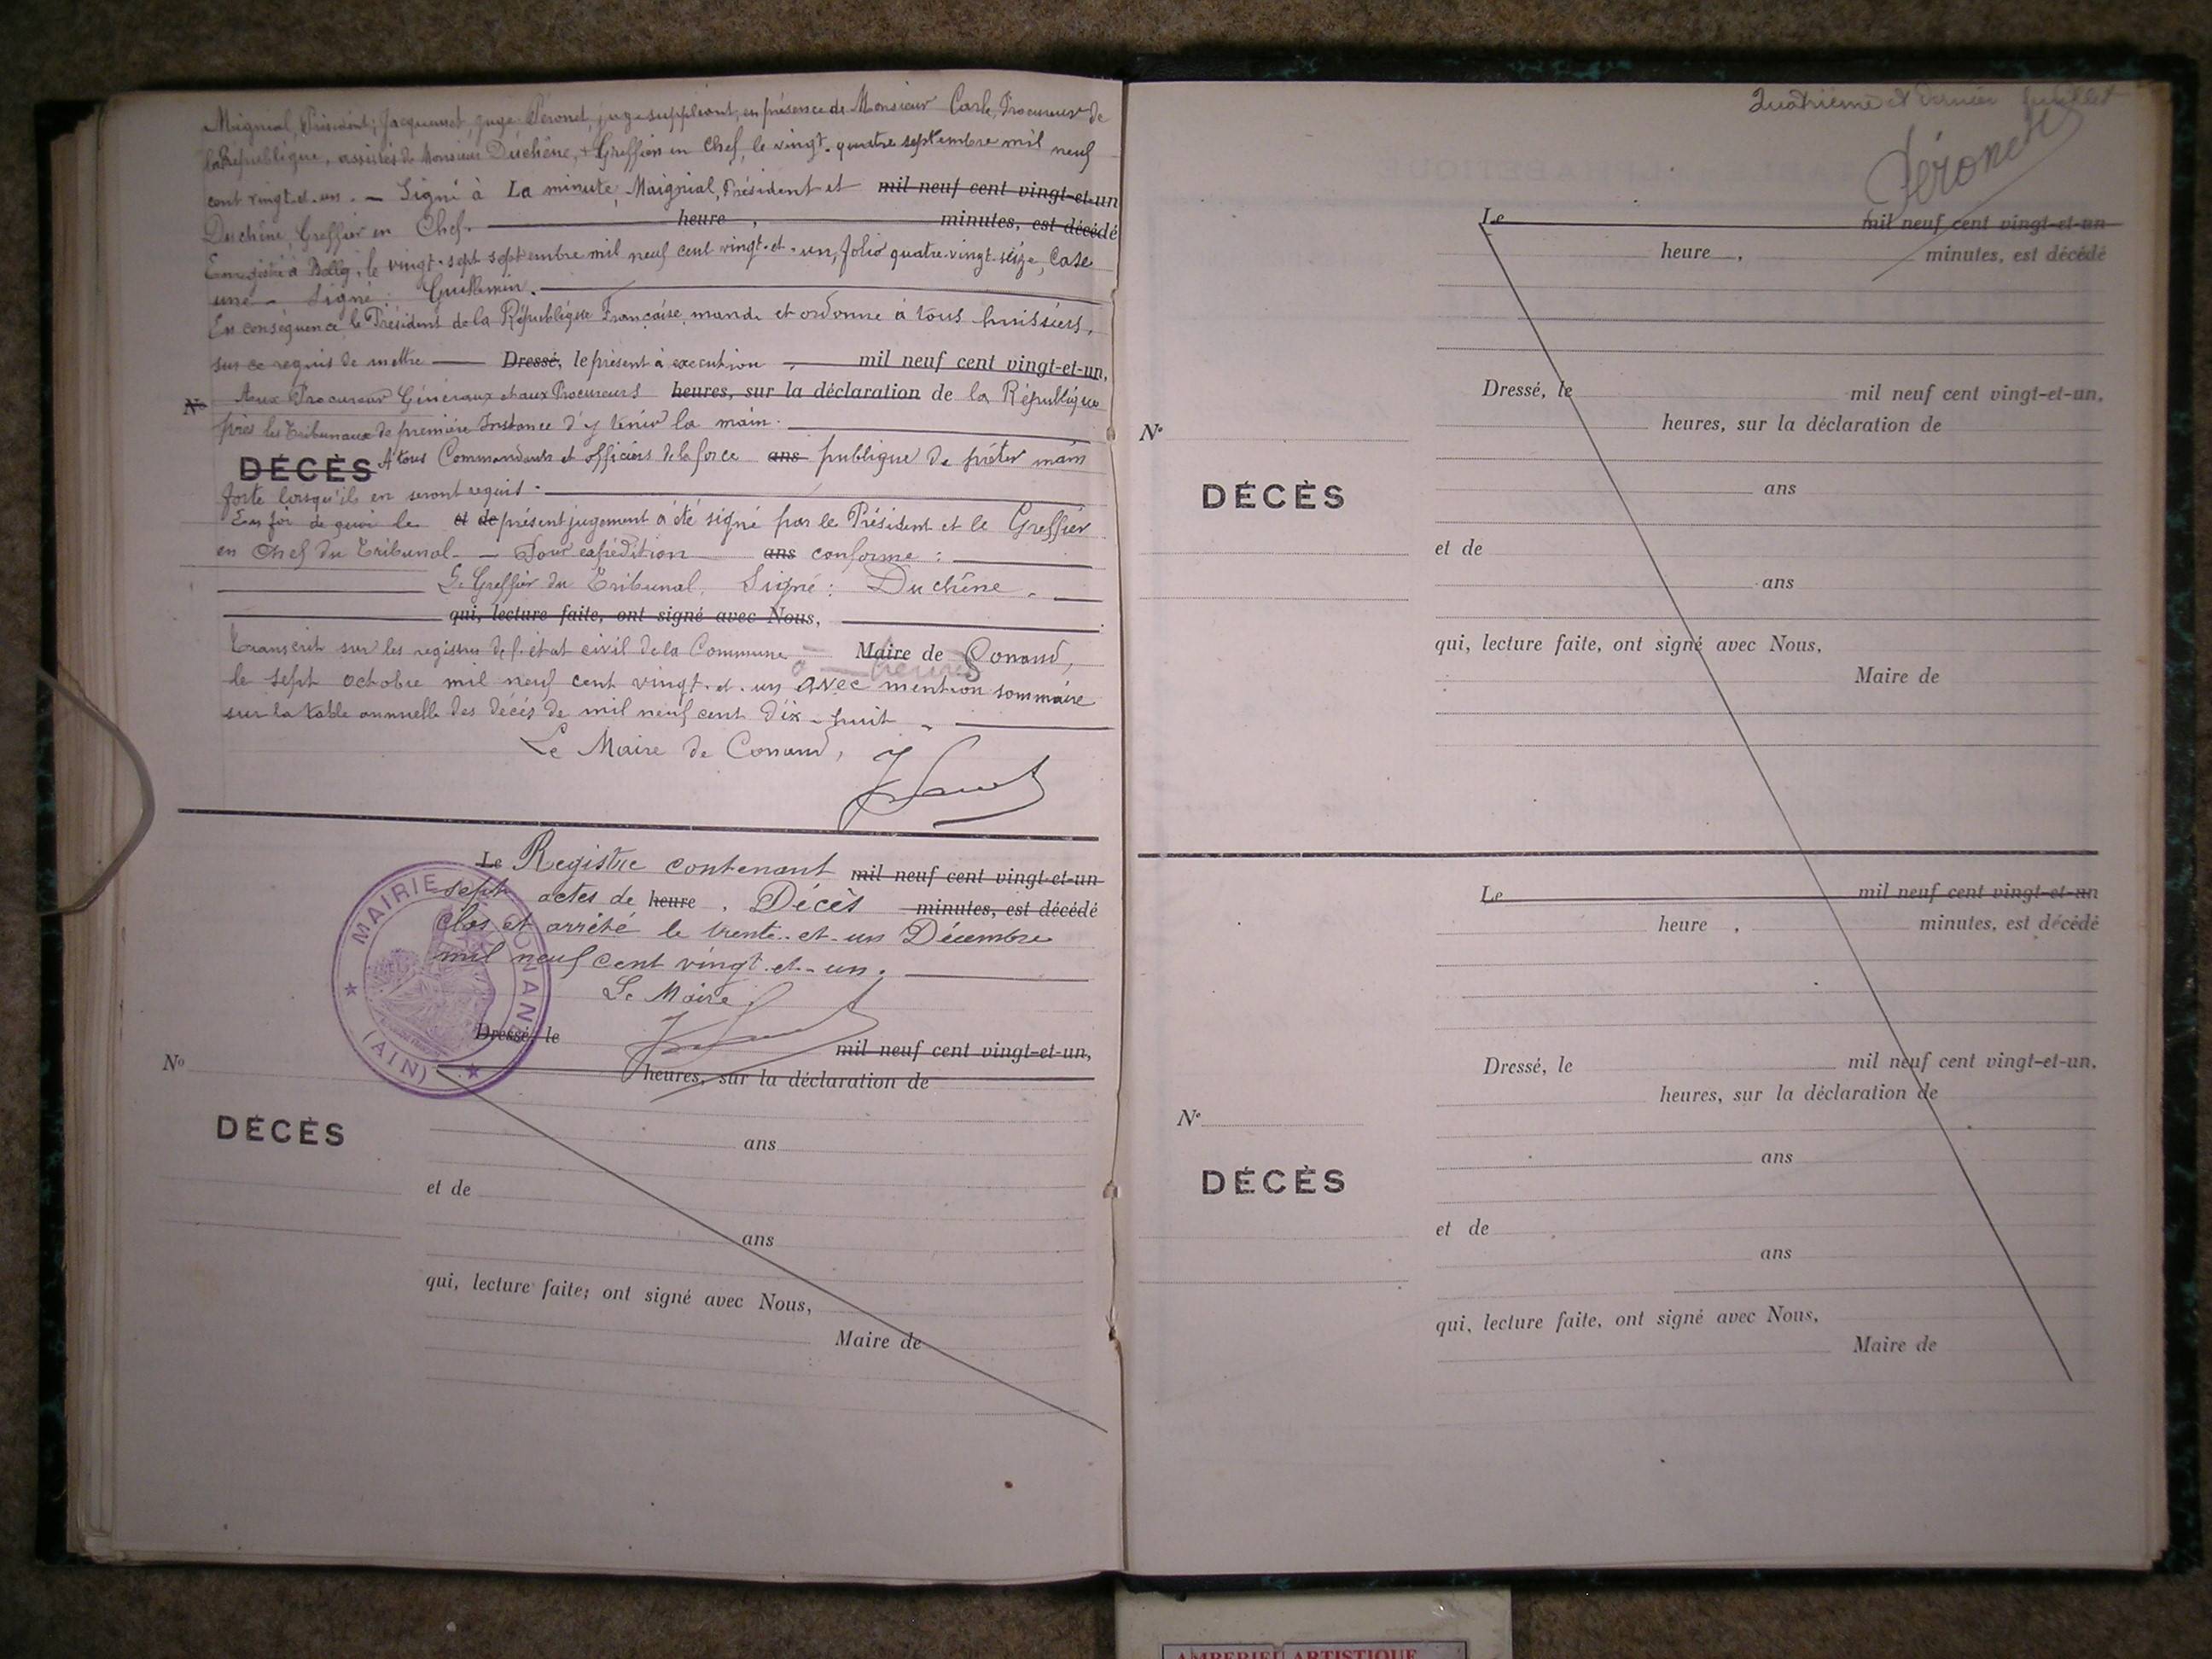 Maignial, Président; Jacquemet, juge Péronet, juge suppléant, en présence de Monsieur Carle, Procureur de
la République, assistés de Monsieur Duchêne, Greffier en Chef, le vingt-quatre septembre mil neuf
cent vingt-et-un. — Signé à La minute, Maignial, Président et mil neuf cent vingt-et-un
Duchêne, Greffier en Chef. heure , minutes, est décédé
Enregistré à Belley, le vingt-sept septembre mil neuf cent vingt-et-un, folio quatre-vingt-seize, Case
une — Signé: Guillemin.
En conséquence le Président de la République Française, mande et ordonne à tous huissiers,
sur ce requis de mettre — Dressé, le présent à execution , mil neuf cent vingt-et-un,
N° Aux Procureur Généraux et aux Procureurs heures, sur la déclaration de la République
près les Tribunaux de première Instance d'y tenir la main.
DÉCÈS A tous Commandants et officiers de la force ans publique de prêter main
forte lorsqu'ils en seront requis.
En foi de quoi le et de présent jugement a été signé par le Président et le Greffier
en Chef du Tribunal. — Pour expédition ans conforme :
Le Greffier du Tribunal, Signé : Duchêne.
qui, lecture faite, ont signé avec Nous,
Transcrit sur les registres de l'état civil de la Commune Maire de Conand,
le sept octobre mil neuf cent vingt-et-un avec mention sommaire
sur la table annuelle des décès de mil neuf cent dix-huit.
Le Maire de Conand,
Le Registre contenant mil neuf cent vingt-et-un
sept actes de heure , Décès minutes, est décédé
clos et arrêté le trente-et-un Décembre
mil neuf cent vingt-et-un.
Le Maire,
MAIRIE DE CONAND
(AIN)
Dressé, le
mil neuf cent vingt-et-un,
N°
heures, sur la déclaration de
DÉCÈS
ans
et de
ans
qui, lecture faite; ont signé avec Nous,
Maire de
Quatrième et dernier feuillet
Péronet
Le mil neuf cent vingt-et-un
heure , minutes, est décédé
Dressé, le mil neuf cent vingt-et-un,
N° heures, sur la déclaration de
DÉCÈS
ans
et de
ans
qui, lecture faite, ont signé avec Nous,
Maire de
Le mil neuf cent vingt-et-un
heure , minutes, est décédé
Dressé, le mil neuf cent vingt-et-un,
heures, sur la déclaration de
N°
DÉCÈS
ans
et de
ans
qui, lecture faite, ont signé avec Nous,
Maire de
AMBERIEU ARTISTIQUE